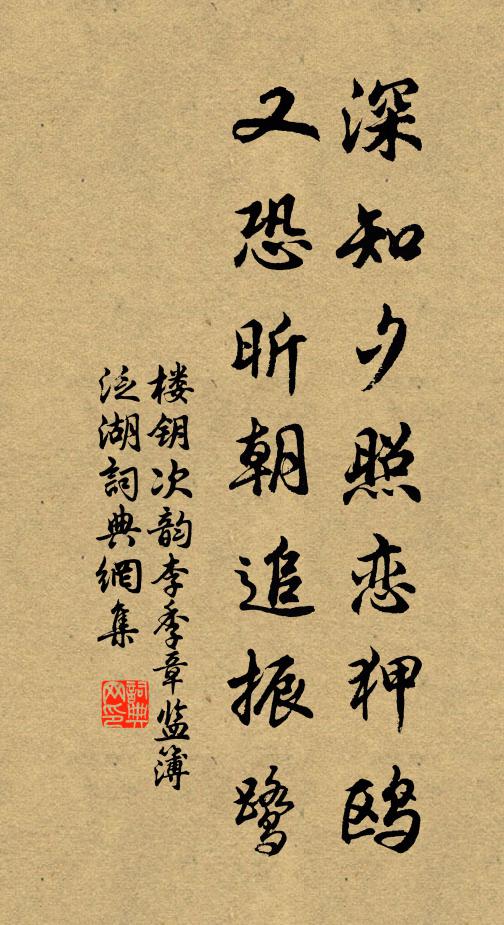 深知夕照恋狎鸥
又恐昕朝追振鹭
楼钥次韵李季章监簿
泛湖词典網集
詞典網印